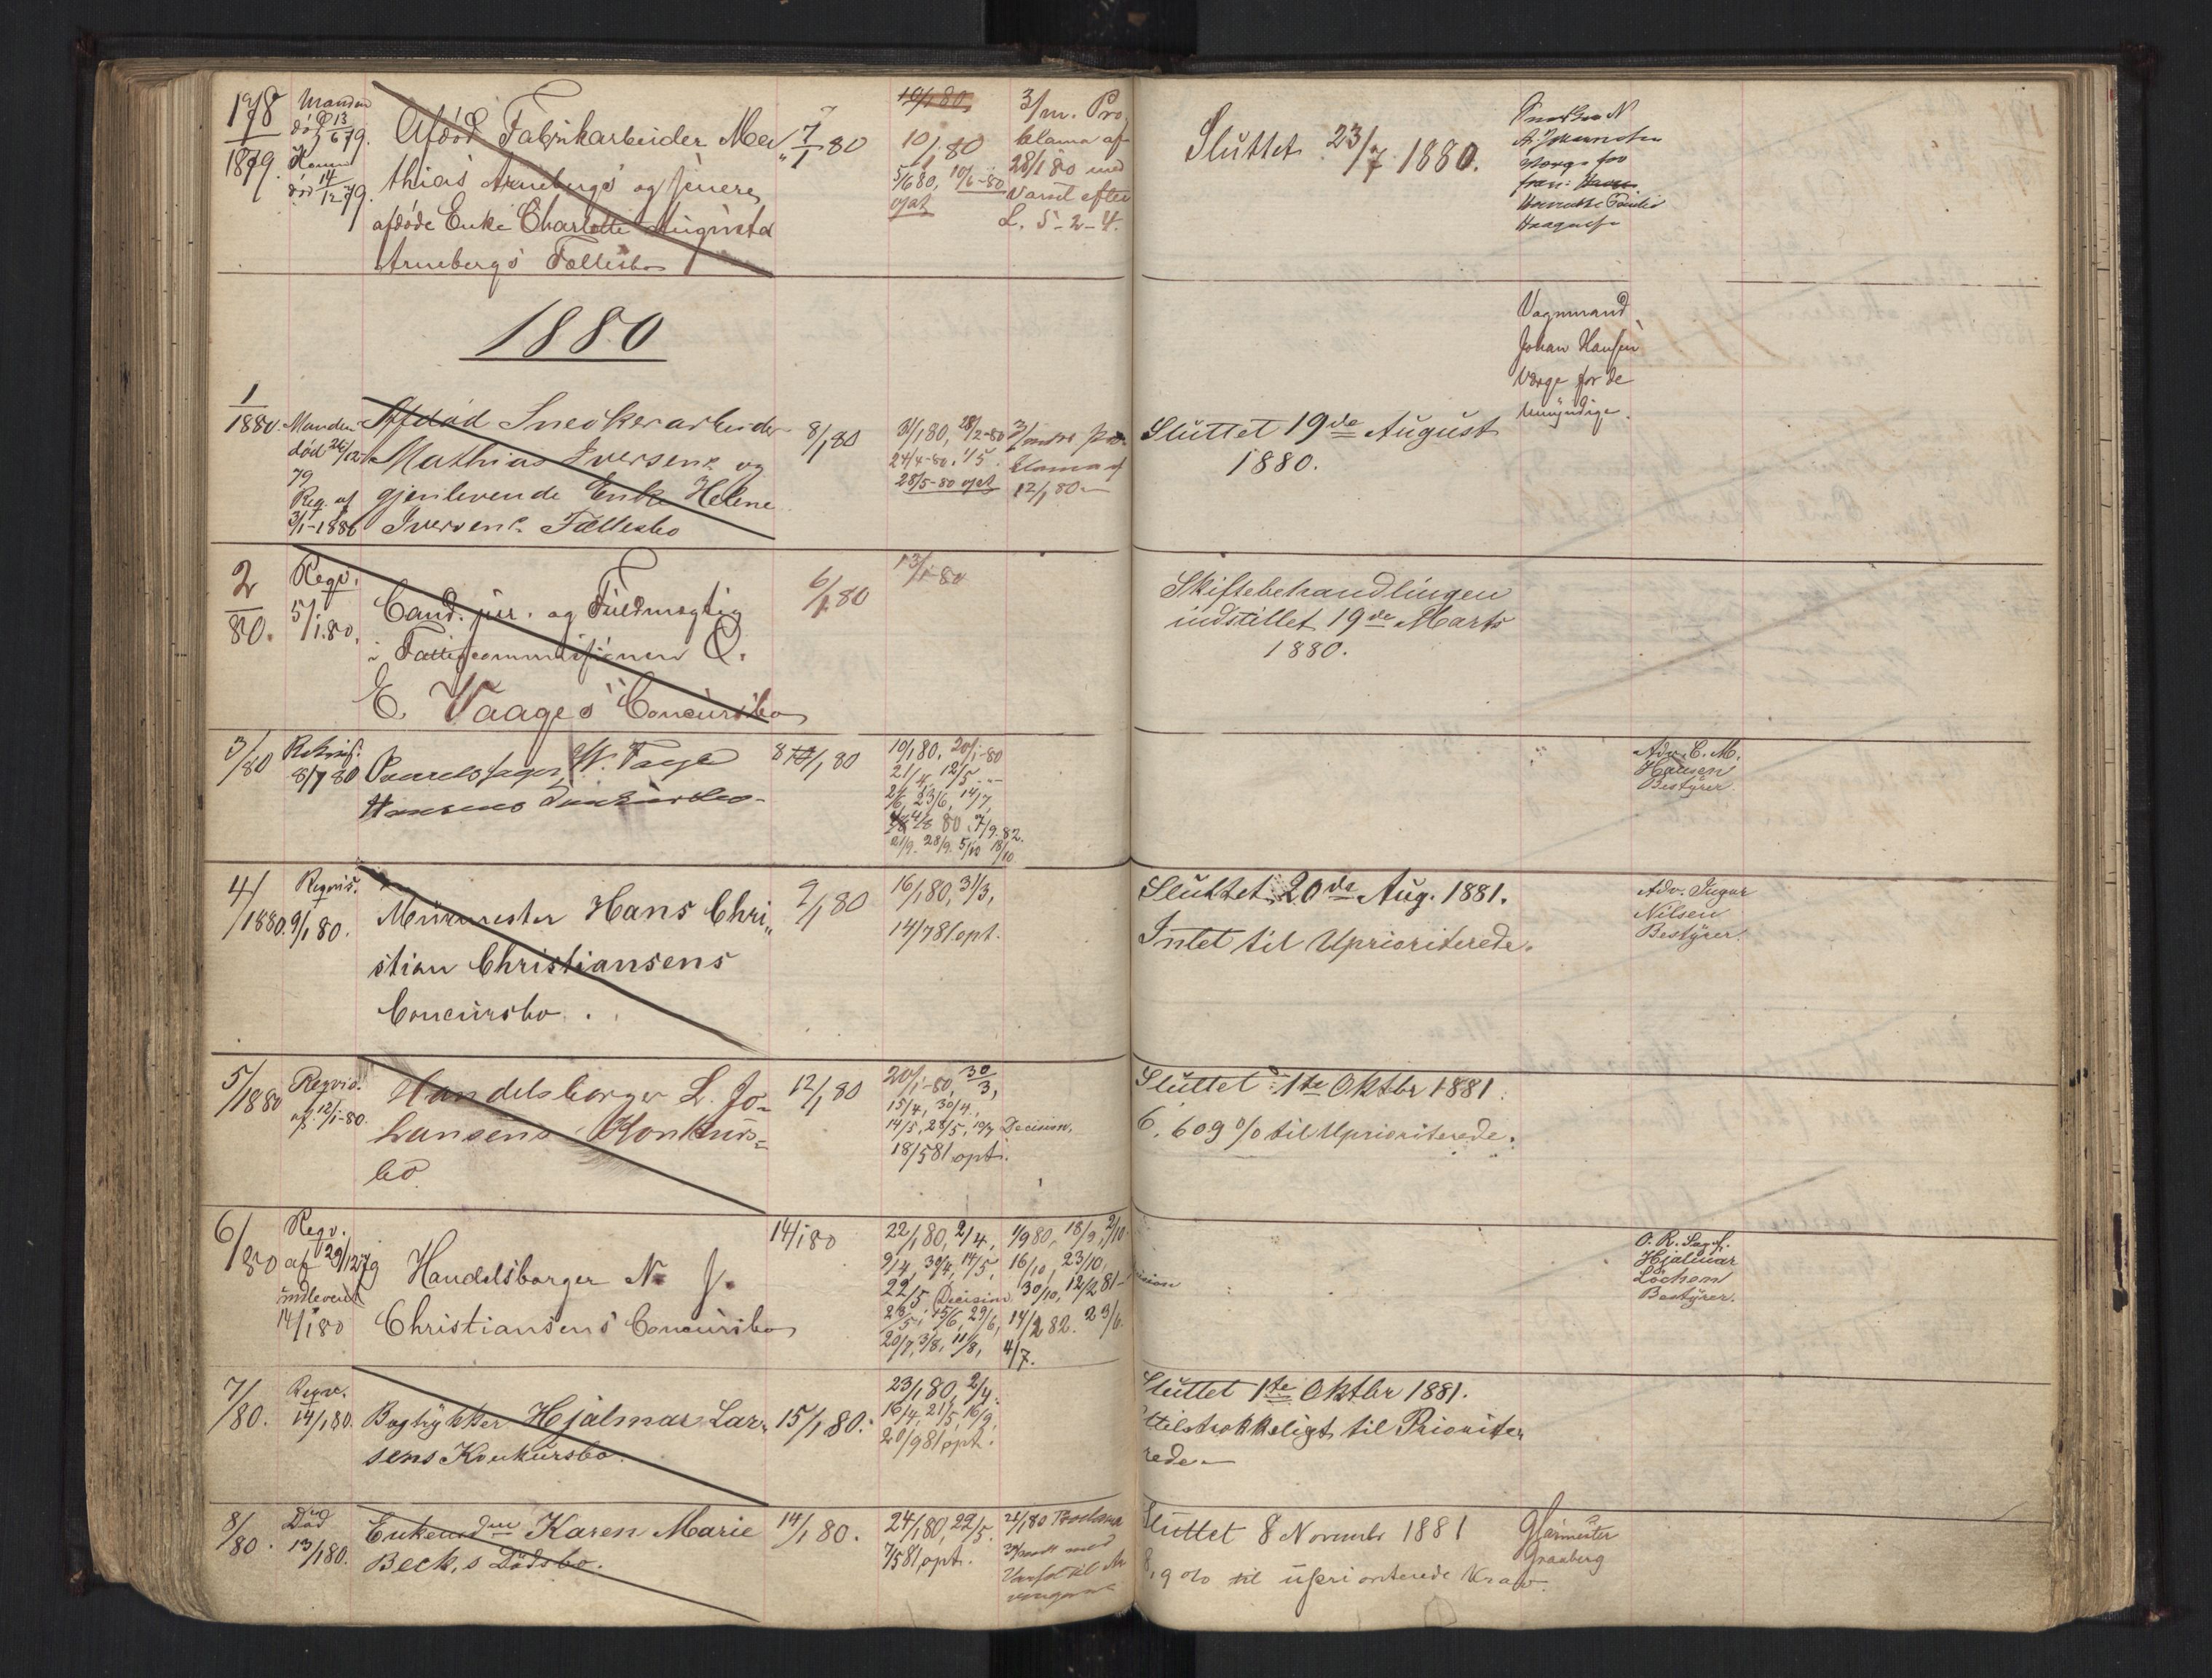 198
1879.
Manden
død 13/6 79.
Konen
død 14/12 79.
Afdød Fabrikarbeider Ma„
thias Arnebergs og senere
afdøde Enke Charlotte Augusta
Arnebergs Fællesbo
7/1 80
10/1 80
10/1 80
5/6 80, 10/6-80
opt
3/m. Pro
klama af
28/1 80 med
Varsel efter
L. 5-2-4.
Sluttet 23/7 1880.
Værge for
1880
1
1880.
Manden
død 26/12
79
Reg. af
3/1-1880
Afdød Snedkerarbeider
Mathias Iversens og
gjenlevende Enke Helene
Iversens Fællesbo
8/1 80
28/2-80
24/4-80. 1/5.
28/5-80 opt
12/1 80
Sluttet 19de August
1880.
Vognmand
Johan Hansen
Værge for de
Umyndige.
2
80.
Reqv.
5/1.80.
Cand. jur. og Fuldmægtig
i Fattigcommissionen O.
E. Vaages Concursbo
6/1 80
13/1-80
Skiftebehandlingen
indstillet 19de Marts
1880.
3/80
8/1 80
W. Fage
Hansens
8/1 80
10/1 80, 20/1-80
21/4, 12/5
23/6, 14/7,
4/8 80. 7/9. 82.
21/9. 28/9. 5/10 18/10
Adv. C. M.
Hansen
Bestyrer.
4/
/1880.
Reqvis.
9/1 80.
Murmester Hans Chri„
stian Christiansens
Concursbo.
9/1 80
16/1 80, 31/3,
14/7 81 opt.
Sluttet 20de Aug. 1881.
Intet til Uprioriterede.
Adv. Ingar
Nilsen
Bestyrer.
5/1880
Reqvis.
af 12/1-80.
Handelsborger L. Jo=
hansens Konkurs=
bo.
12/1 80
20/1-80, 30/3,
15/4, 30/4,
14/5, 28/5, 10/7 Decision.
18/5 81 opt.
Sluttet 1ste Oktbr 1881.
6,609 % til Uprioriterede.
6/80
Reqv.
af 29/12 79
indleveret
14/1 80
Handelsborger N. J.
Christiansens Concursbo
14/1 80
22/1 80, 2/4,
9/4, 30/4, 14/5,
22/5 Decision
28/5, 15/6, 29/6,
20/7, 3/8, 11/8,
1/9 80, 18/9, 2/10
16/10, 23/10,
30/10, 12/2 81-
14/2 82. 23/6.
4/7.
O. R. Sagf.
Hjalmar
Lochem
Bestyrer.
7/80.
Reqv.
14/1 80.
Bogtrykker Hjalmar Lar„
sens Konkursbo.
15/1 80.
23/1 80, 2/4.
16/4, 21/5, 16/9,
20/9 81 opt.
Sluttet 1ste Oktbr 1881.
Utilstrækkeligt til Prioriter
rede.
8/80.
Død
13/1 80.
Enkemadm Karen Marie
Beck,s Dødsbo.
14/1 80.
24/1 80, 22/5.
7/5 81 opt.
Sluttet 8 Novembr 1881
8,9 % til uprioriterede Krav.
Glarmester
Granberg